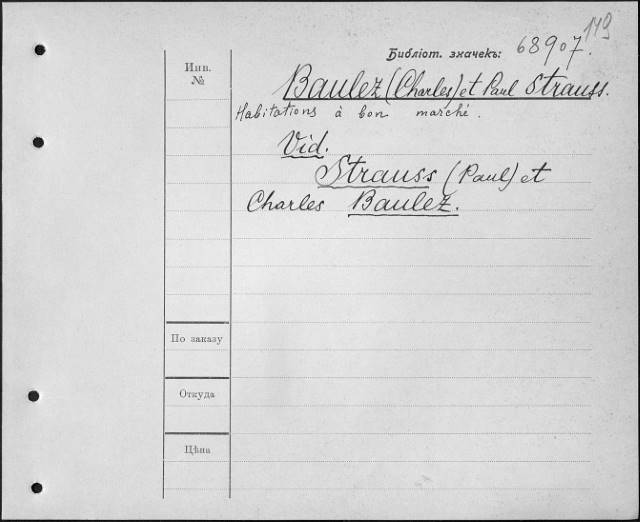 149
Библіот. значекъ: 68907.
Инв.
№
Baulez (Charles) et Paul Strauss.
Habitations à bon marché.
Vid.
Strauss (Paul) et
Charles Baulez.
По заказу
Откуда
Цѣна